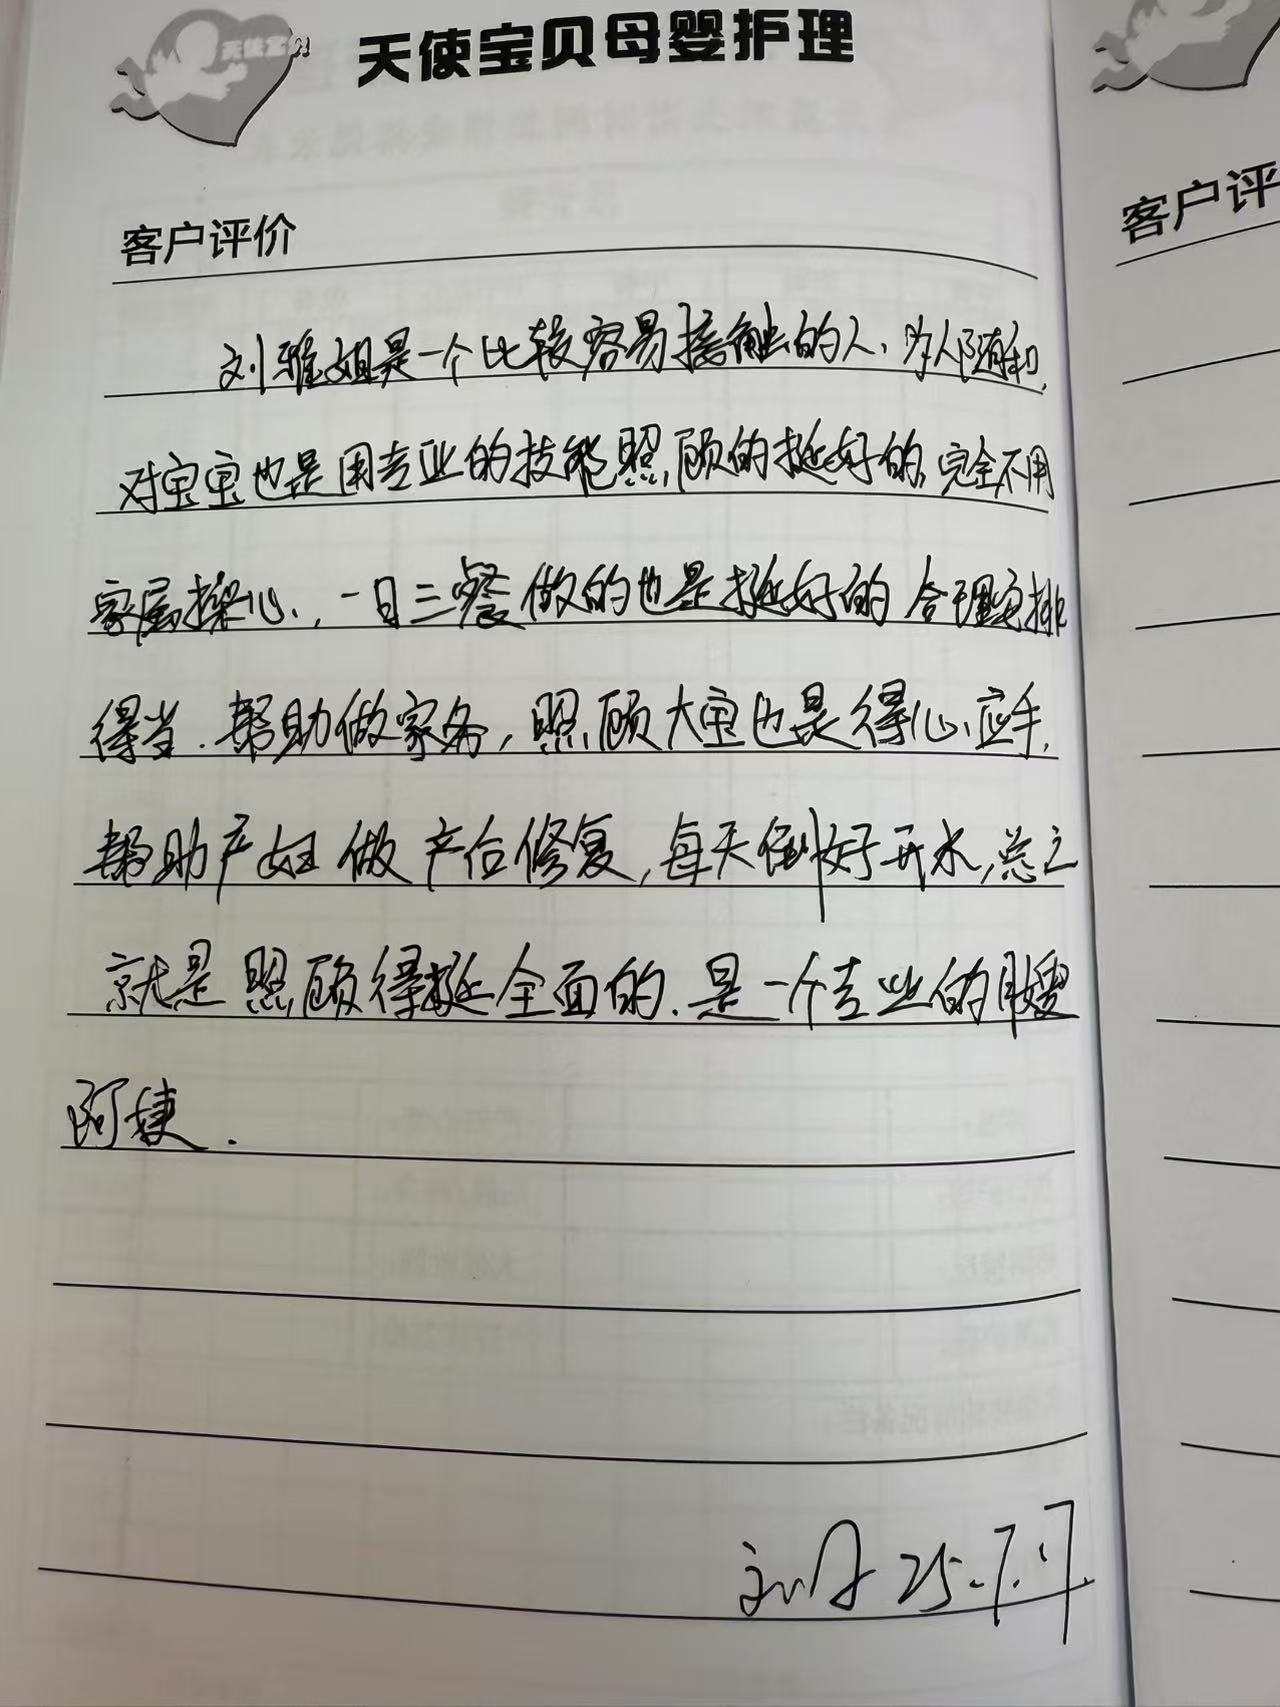 天使宝贝
天使宝贝母婴护理
客户评价
客户评
刘雅姐是一个比较容易接触的人、为人随和,
对宝宝也是用专业的技能照顾的挺好的,完全不用
家属操心,一日三餐做的也是挺好的 合理安排
得当.帮助做家务,照顾大宝也是得心应手,
帮助产妇做产后修复,每天倒好开水,总之
就是照顾得挺全面的.是一个专业的月嫂
阿姨.
25.7.17